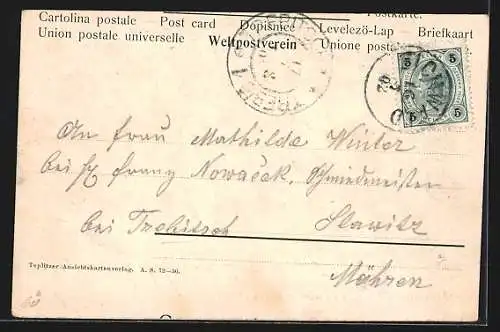 Postkarte.
Cartolina postale Post card Dopisnice Levelezö-Lap Briefkaart
Union postale universelle Weltpostverein Unione postale
5 5
5 5
An Frau Mathilde Winter
bei H Franz Nowaček, Schmiedmeister
bei Trebitsch Slawitz
Mähren
Teplitzer Ansichtskartenverlag. A. S. 72—30.